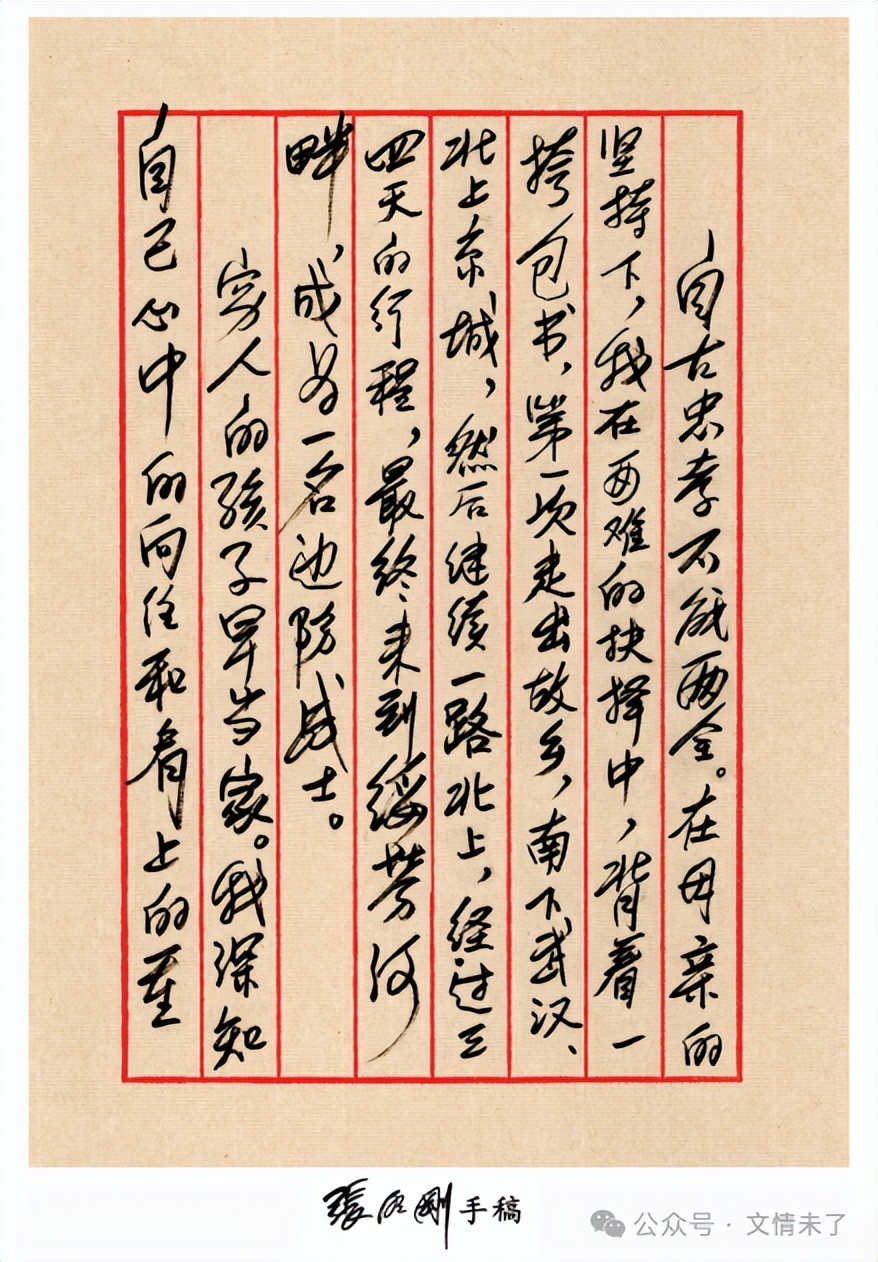 自古忠孝不能两全。在母亲的
坚持下，我在两难的抉择中，背着一
挎包书，第一次走出故乡，南下武汉、
北上京城，然后继续一路北上，经过三
四天的行程，最终来到绥芬河
畔，成为一名边防战士。
穷人的孩子早当家。我深知
自己心中的向往和肩上的重
張 剛手稿
公众号 · 文情未了